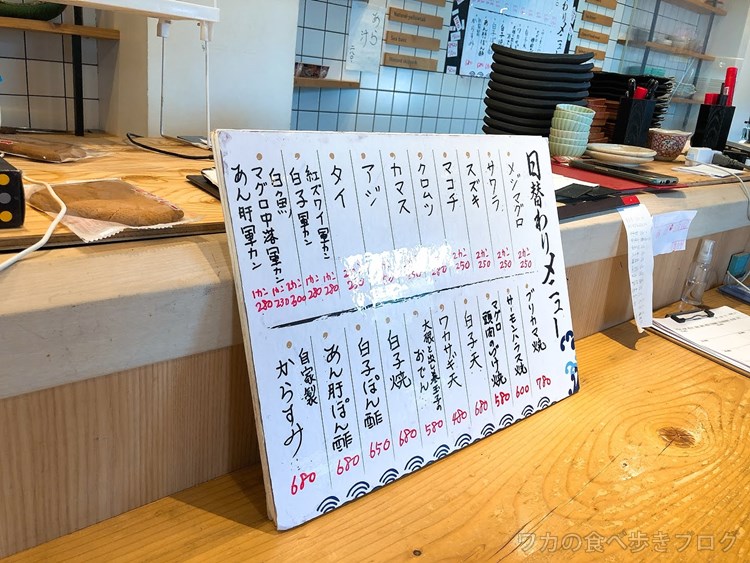 日替わりメニュー
メジマグロ 2カン 250
サワラ 2カン 250
スズキ 2カン 250
マコチ 2カン 250
クロムツ 280
カマス
アジ
タイ
紅ズワイ軍カン 1カン 280
白子軍カン 1カン 280
白魚 2カン 300
マグロ中落軍カン 1カン 230
あん肝軍カン 1カン 280
ブリカマ焼 780
サーモンハラス焼 600
マグロ頭肉のづけ焼 580
白子天 680
ワカサギ天 480
大根と出し巻玉子のおでん 580
白子焼 680
白子ぽん酢 650
あん肝ぽん酢 680
自家製からすみ 680
ワカの食べ歩きブログ